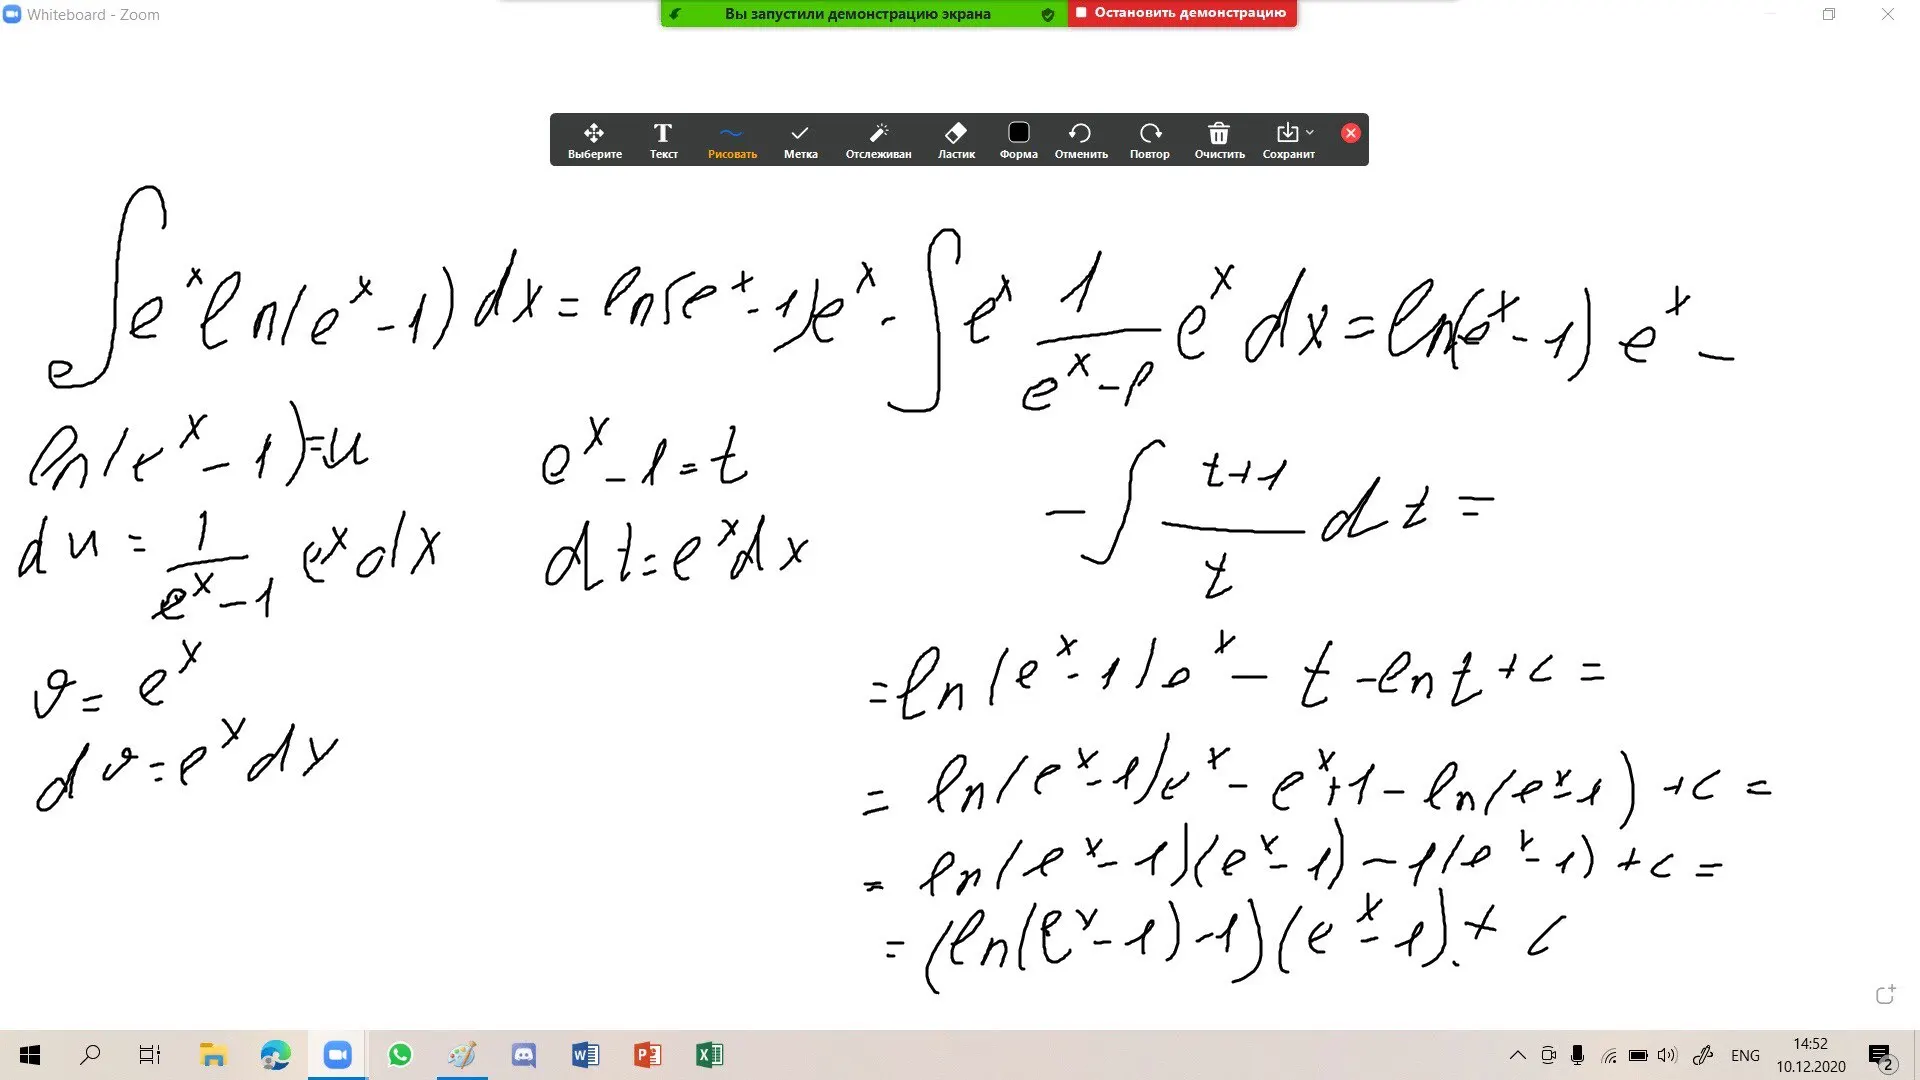 Whiteboard - Zoom
Вы запустили демонстрацию экрана
Остановить демонстрацию
Выберите Текст Рисовать Метка Отслеживан Ластик Форма Отменить Повтор Очистить Сохранит
∫ e^x ln(e^x - 1) dx = ln(e^x - 1)e^x - ∫ e^x 1/(e^x - 1) e^x dx = ln(e^x - 1) e^x -
- ∫ (t+1)/t dt =
ln(e^x - 1) = u
du = 1/(e^x - 1) e^x dx
v = e^x
dv = e^x dx
e^x - 1 = t
dt = e^x dx
= ln(e^x - 1)e^x - t - ln t + c =
= ln(e^x - 1)e^x - e^x + 1 - ln(e^x - 1) + c =
= ln(e^x - 1)(e^x - 1) - 1(e^x - 1) + c =
= (ln(e^x - 1) - 1)(e^x - 1) + c
ENG
14:52
10.12.2020
2